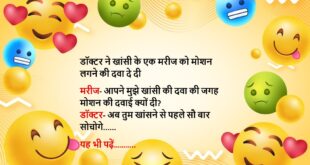 डॉक्टर ने खांसी के एक मरीज को मोशन
लगने की दवा दे दी
मरीज- आपने मुझे खांसी की दवा की जगह
मोशन की दवाई क्यों दी?
डॉक्टर- अब तुम खांसने से पहले सौ बार
सोचोगे......
यह भी पढ़ें...........